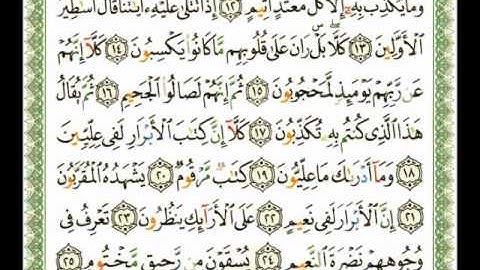 وَمَا يُكَذِّبُ بِهِۦٓ إِلَّا كُلُّ مُعْتَدٍ أَثِيمٍ ١٢ إِذَا تُتْلَىٰ عَلَيْهِ ءَايَٰتُنَا قَالَ أَسَٰطِيرُ
ٱلْأَوَّلِينَ ١٣ كَلَّا ۖ بَلْ ۜ رَانَ عَلَىٰ قُلُوبِهِم مَّا كَانُوا۟ يَكْسِبُونَ ١٤ كَلَّآ إِنَّهُمْ
عَن رَّبِّهِمْ يَوْمَئِذٍ لَّمَحْجُوبُونَ ١٥ ثُمَّ إِنَّهُمْ لَصَالُوا۟ ٱلْجَحِيمِ ١٦ ثُمَّ يُقَالُ
هَٰذَا ٱلَّذِى كُنتُم بِهِۦ تُكَذِّبُونَ ١٧ كَلَّآ إِنَّ كِتَٰبَ ٱلْأَبْرَارِ لَفِى عِلِّيِّينَ
١٨ وَمَآ أَدْرَىٰكَ مَا عِلِّيُّونَ ١٩ كِتَٰبٌ مَّرْقُومٌ ٢٠ يَشْهَدُهُ ٱلْمُقَرَّبُونَ
٢١ إِنَّ ٱلْأَبْرَارَ لَفِى نَعِيمٍ ٢٢ عَلَى ٱلْأَرَآئِكِ يَنظُرُونَ ٢٣ تَعْرِفُ فِى
وُجُوهِهِمْ نَضْرَةَ ٱلنَّعِيمِ ٢٤ يُسْقَوْنَ مِن رَّحِيقٍ مَّخْتُومٍ ٢٥